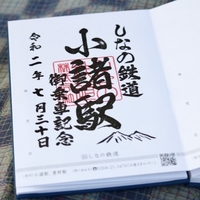 しなの鉄道
小諸駅
御乗車記念
令和二年七月三十日
しなの鉄道